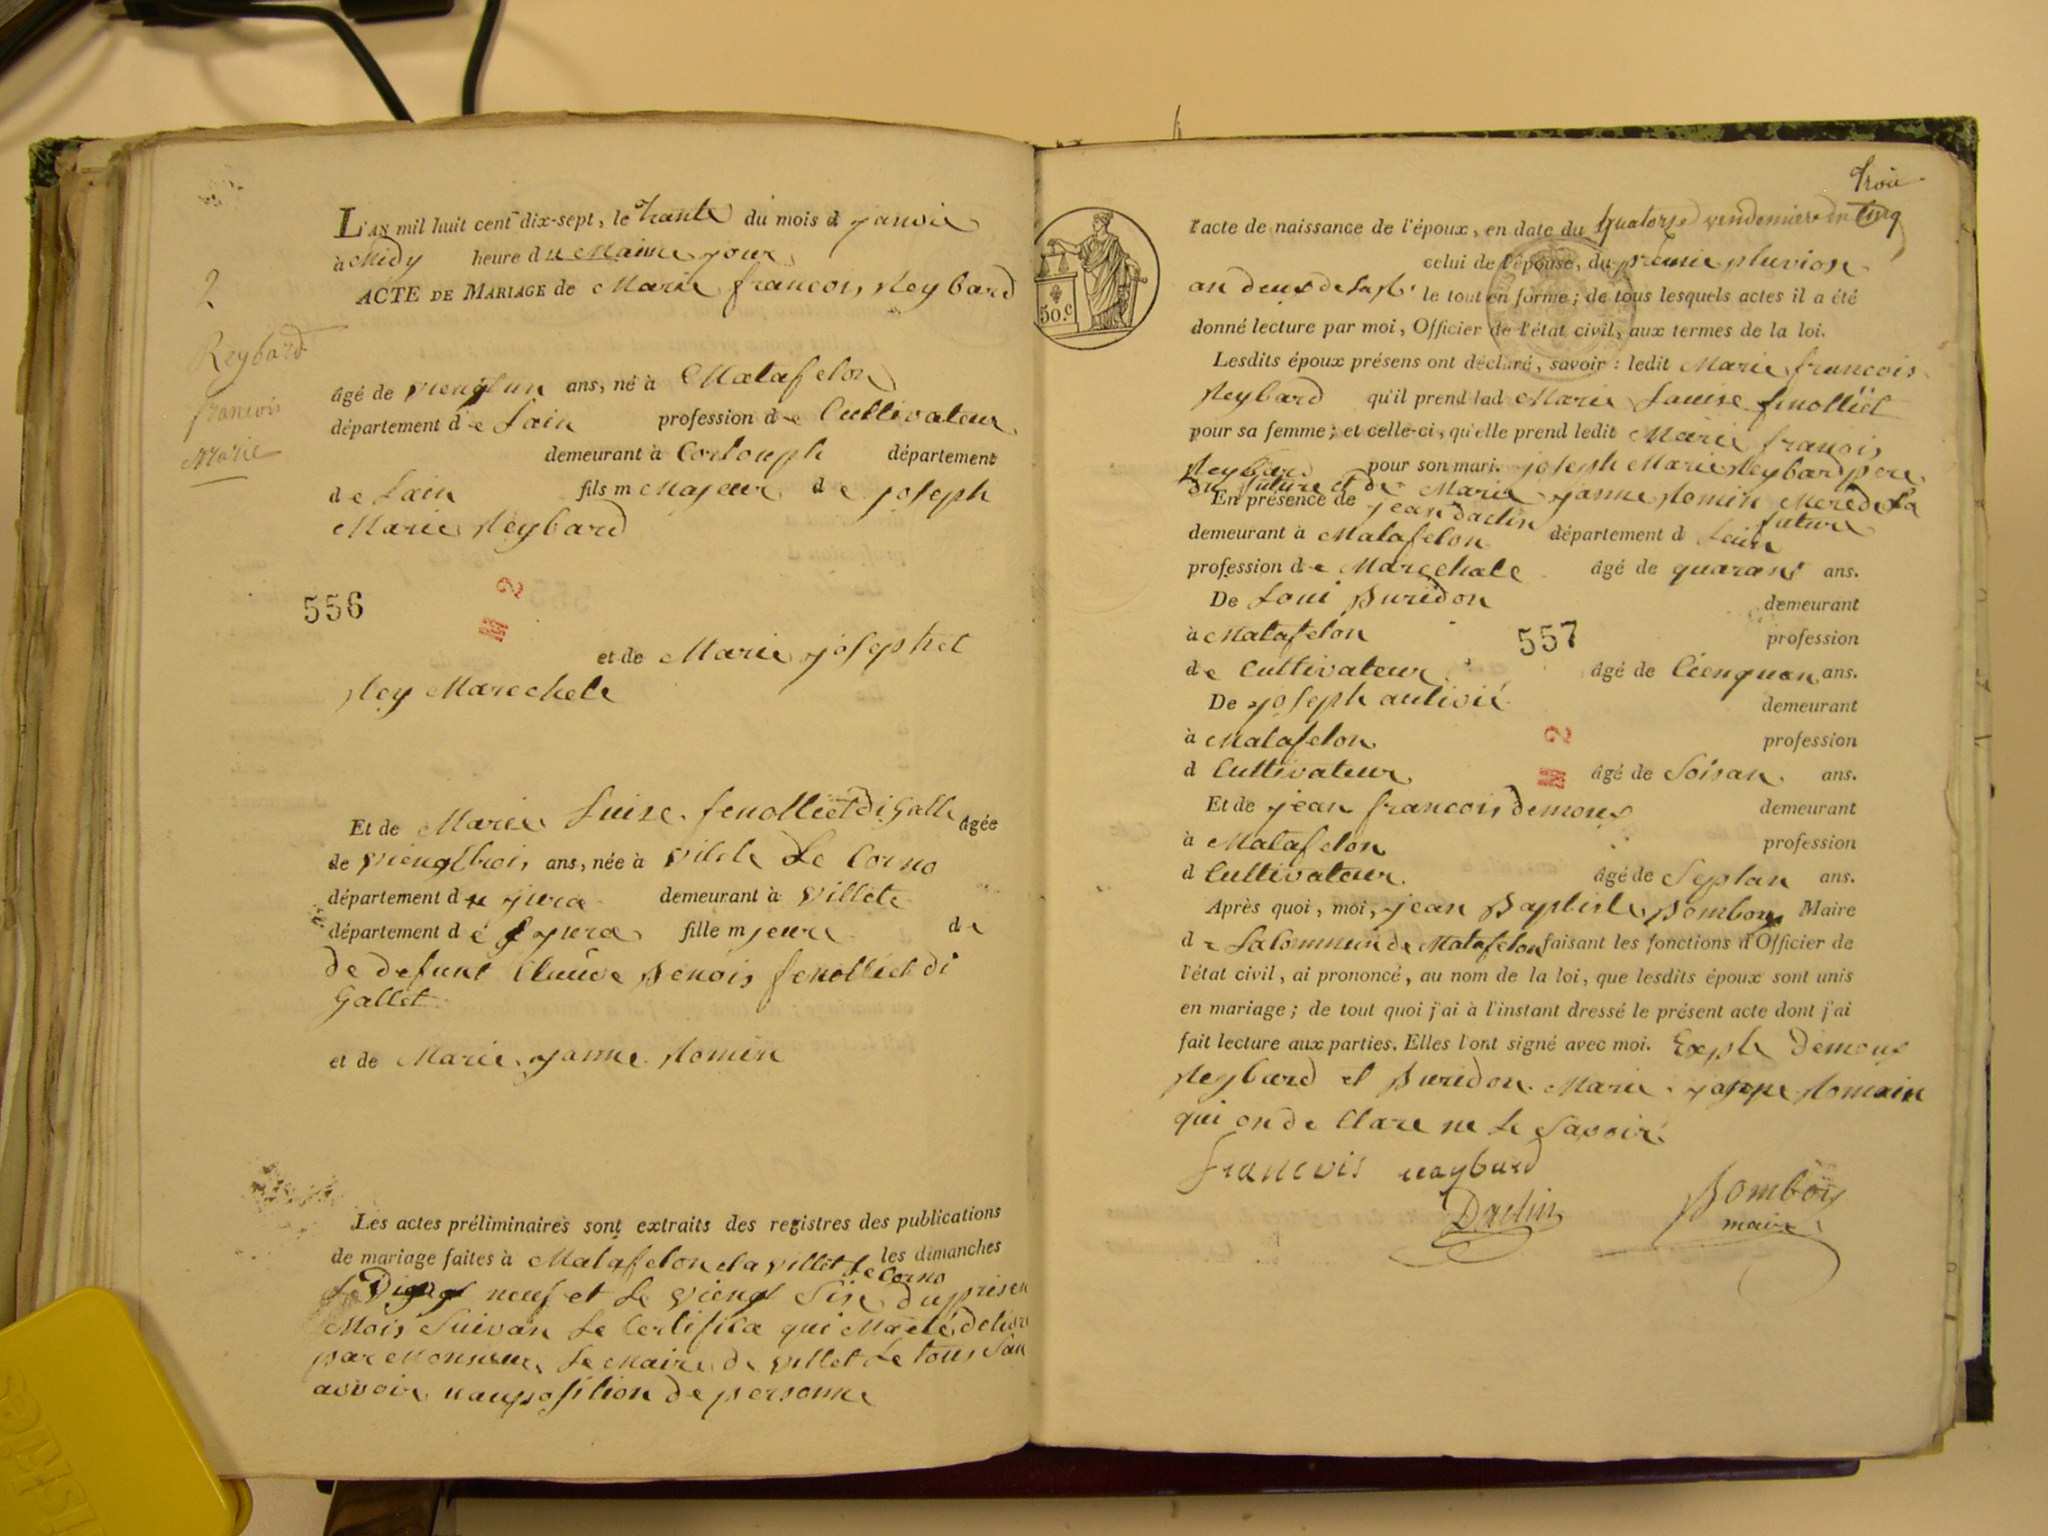 2
Reybard
francois
Marie
L'AN mil huit cent dix-sept, le Trante du mois d janvie
à Midy heure du Maime jour
ACTE DE MARIAGE de Marie francois Reybard
âgé de viengtun ans, né à Matafelon
département de Lain profession de Cultivateur
demeurant à Corlouph département
de Lain fils m Majeur de joseph
Marie Reybard
556
2
et de Marie josephet
Rey Marechele
Et de Marie Luise fenolliet di Galle âgée
de viengttrois ans, née à vilete Le Corno
département du jura demeurant à villete
département dé jura fille mjeure de
de defunt Claude Benois fenolliet di
Gallet
et de Marie janne Romin
Les actes préliminaires sont extraits des registres des publications
de mariage faites à Matafelon et a villet Le Corno les dimanches
Le neuf et Le viengt Six du presen
Mois Suivan Le Certifica qui Maeté delivr
par Monsieur Le Maire de villet Le tous San
avvoir nauposition de personne
Troi
50.c
l'acte de naissance de l'époux, en date du quatorze vendemiere Cinq
celui de l'épouse, du premie pluviose
an deux de la le tout en forme; de tous lesquels actes il a été
donné lecture par moi, Officier de l'état civil, aux termes de la loi.
Lesdits époux présens ont déclaré, savoir: ledit Marie francois
Reybard qu'il prend lad Marie Lauise fenolliet
pour sa femme; et celle-ci, qu'elle prend ledit Marie franois
Reybard pour son mari. joseph Marie Reybard pere
du future et de Marie janne Romin Mere de La
future
En présence de jean Darlin
demeurant à Matafelon département d Lain
profession de Marechale âgé de quarant ans.
De Loui Buridon demeurant
à Matafelon profession
557
de Cultivateur âgé de Cienquan ans.
De joseph aulivié demeurant
à Matafelon profession
2
d Cultivateur âgé de Soisan ans.
Et de jean francois demoux demeurant
à Matafelon profession
d Cultivateur âgé de Septan ans.
Après quoi, moi, jean Baptiste Bombois Maire
de La Commun de Matafelon faisant les fonctions d'Officier de
l'état civil, ai prononcé, au nom de la loi, que lesdits époux sont unis
en mariage; de tout quoi j'ai à l'instant dressé le présent acte dont j'ai
fait lecture aux parties. Elles l'ont signé avec moi. Exple demoux
Reybard et Buridon Marie janne Romain
qui on de Clare ne Le Savoir
francois raybard
Darlin
Bombois
maire